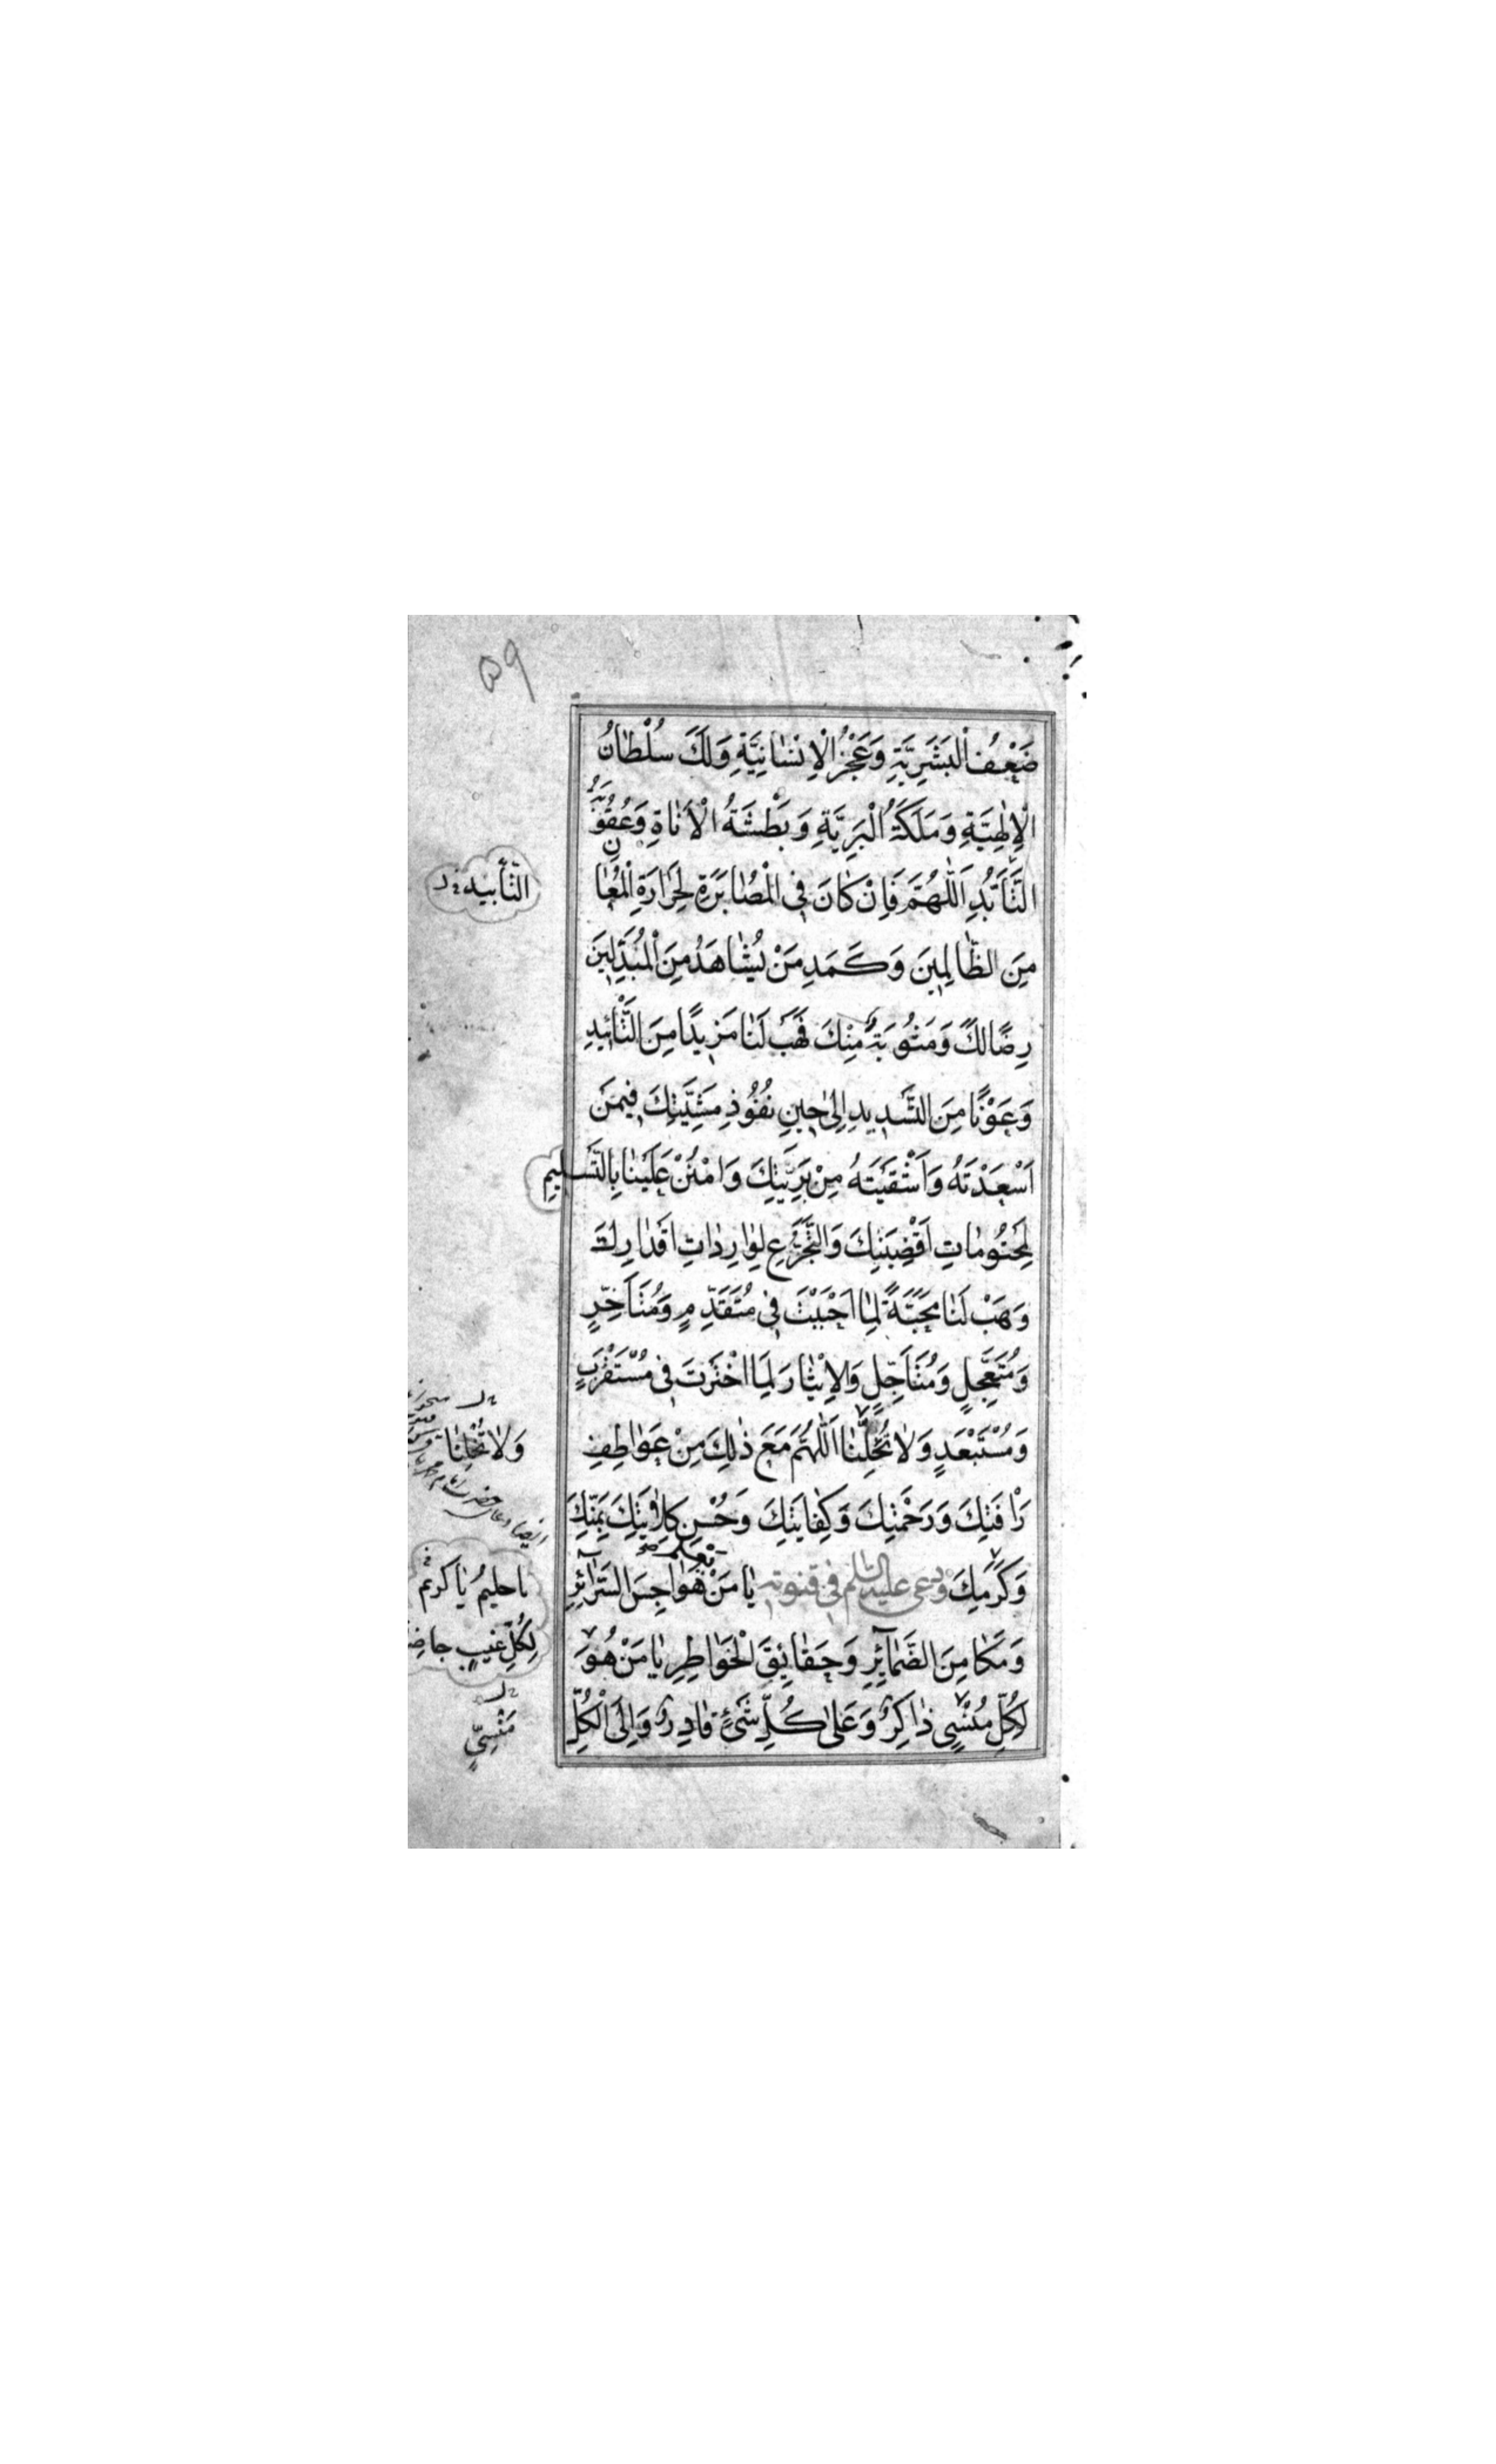 ٥٩
ضَعْفُ الْبَشَرِيَّةِ وَعَجْزُ الْاِنْسَانِيَّةِ وَلَكَ سُلْطَانُ
الْاِلٰهِيَّةِ وَمَلَكَةُ الْبَرِيَّةِ وَبَطْشَةُ الْاَنَاةِ وَعُقُوبَةُ
التَّأَبُّدِ اَللّٰهُمَّ فَاِنْ كَانَ فِي الْمُصَابَرَةِ لِحَرَارَةِ الْمُعَانِ
التَّأْبِيدِ
مِنَ الظَّالِمِينَ وَكَمَدِ مَنْ يُشَاهَدُ مِنَ الْمُبَدِّلِينَ
رِضًا لَكَ وَمَثُوبَةً مِنْكَ فَهَبْ لَنَا مَزِيدًا مِنَ التَّأْيِيدِ
وَعَوْنًا مِنَ التَّسْدِيدِ اِلٰى حِينِ نُفُوذِ مَشِيَّتِكَ فِيمَنْ
اَسْعَدْتَهُ وَاَشْقَيْتَهُ مِنْ بَرِيَّتِكَ وَامْنُنْ عَلَيْنَا بِالتَّسْلِيمِ
لِمَحْتُومَاتِ اَقْضِيَتِكَ وَالتَّجَرُّعِ لِوَارِدَاتِ اَقْدَارِكَ
وَهَبْ لَنَا مَحَبَّةً لِمَا اَحْبَبْتَ فِي مُتَقَدِّمٍ وَمُتَأَخِّرٍ
وَمُتَعَجِّلٍ وَمُتَأَجِّلٍ وَالْاِيْثَارَ لِمَا اخْتَرْتَ فِي مُسْتَقْرَبٍ
وَمُسْتَبْعَدٍ وَلَا تُخَلِّنَا اَللّٰهُمَّ مَعَ ذٰلِكَ مِنْ عَوَاطِفِ
وَلَا تُخْلِنَا
رَأْفَتِكَ وَرَحْمَتِكَ وَكِفَايَتِكَ وَحُسْنِ كِلَاءَتِكَ بِمَنِّكَ
وَكَرَمِكَ وَدعى عليه السلم في قنوته يَا مَنْ يَعْلَمُ هَوَاجِسَ السَّرَآئِرِ
يا حليمُ يا كريم
وَمَكَامِنَ الضَّمَآئِرِ وَحَقَائِقَ الْخَوَاطِرِ يَا مَنْ هُوَ
لِكُلِّ غَيْبٍ حاضِر
لِكُلِّ مَنْسِيٍّ ذَاكِرٌ وَعَلٰى كُلِّ شَيْءٍ قَادِرٌ وَاِلَى الْكُلِّ
مَنْسِيٍّ